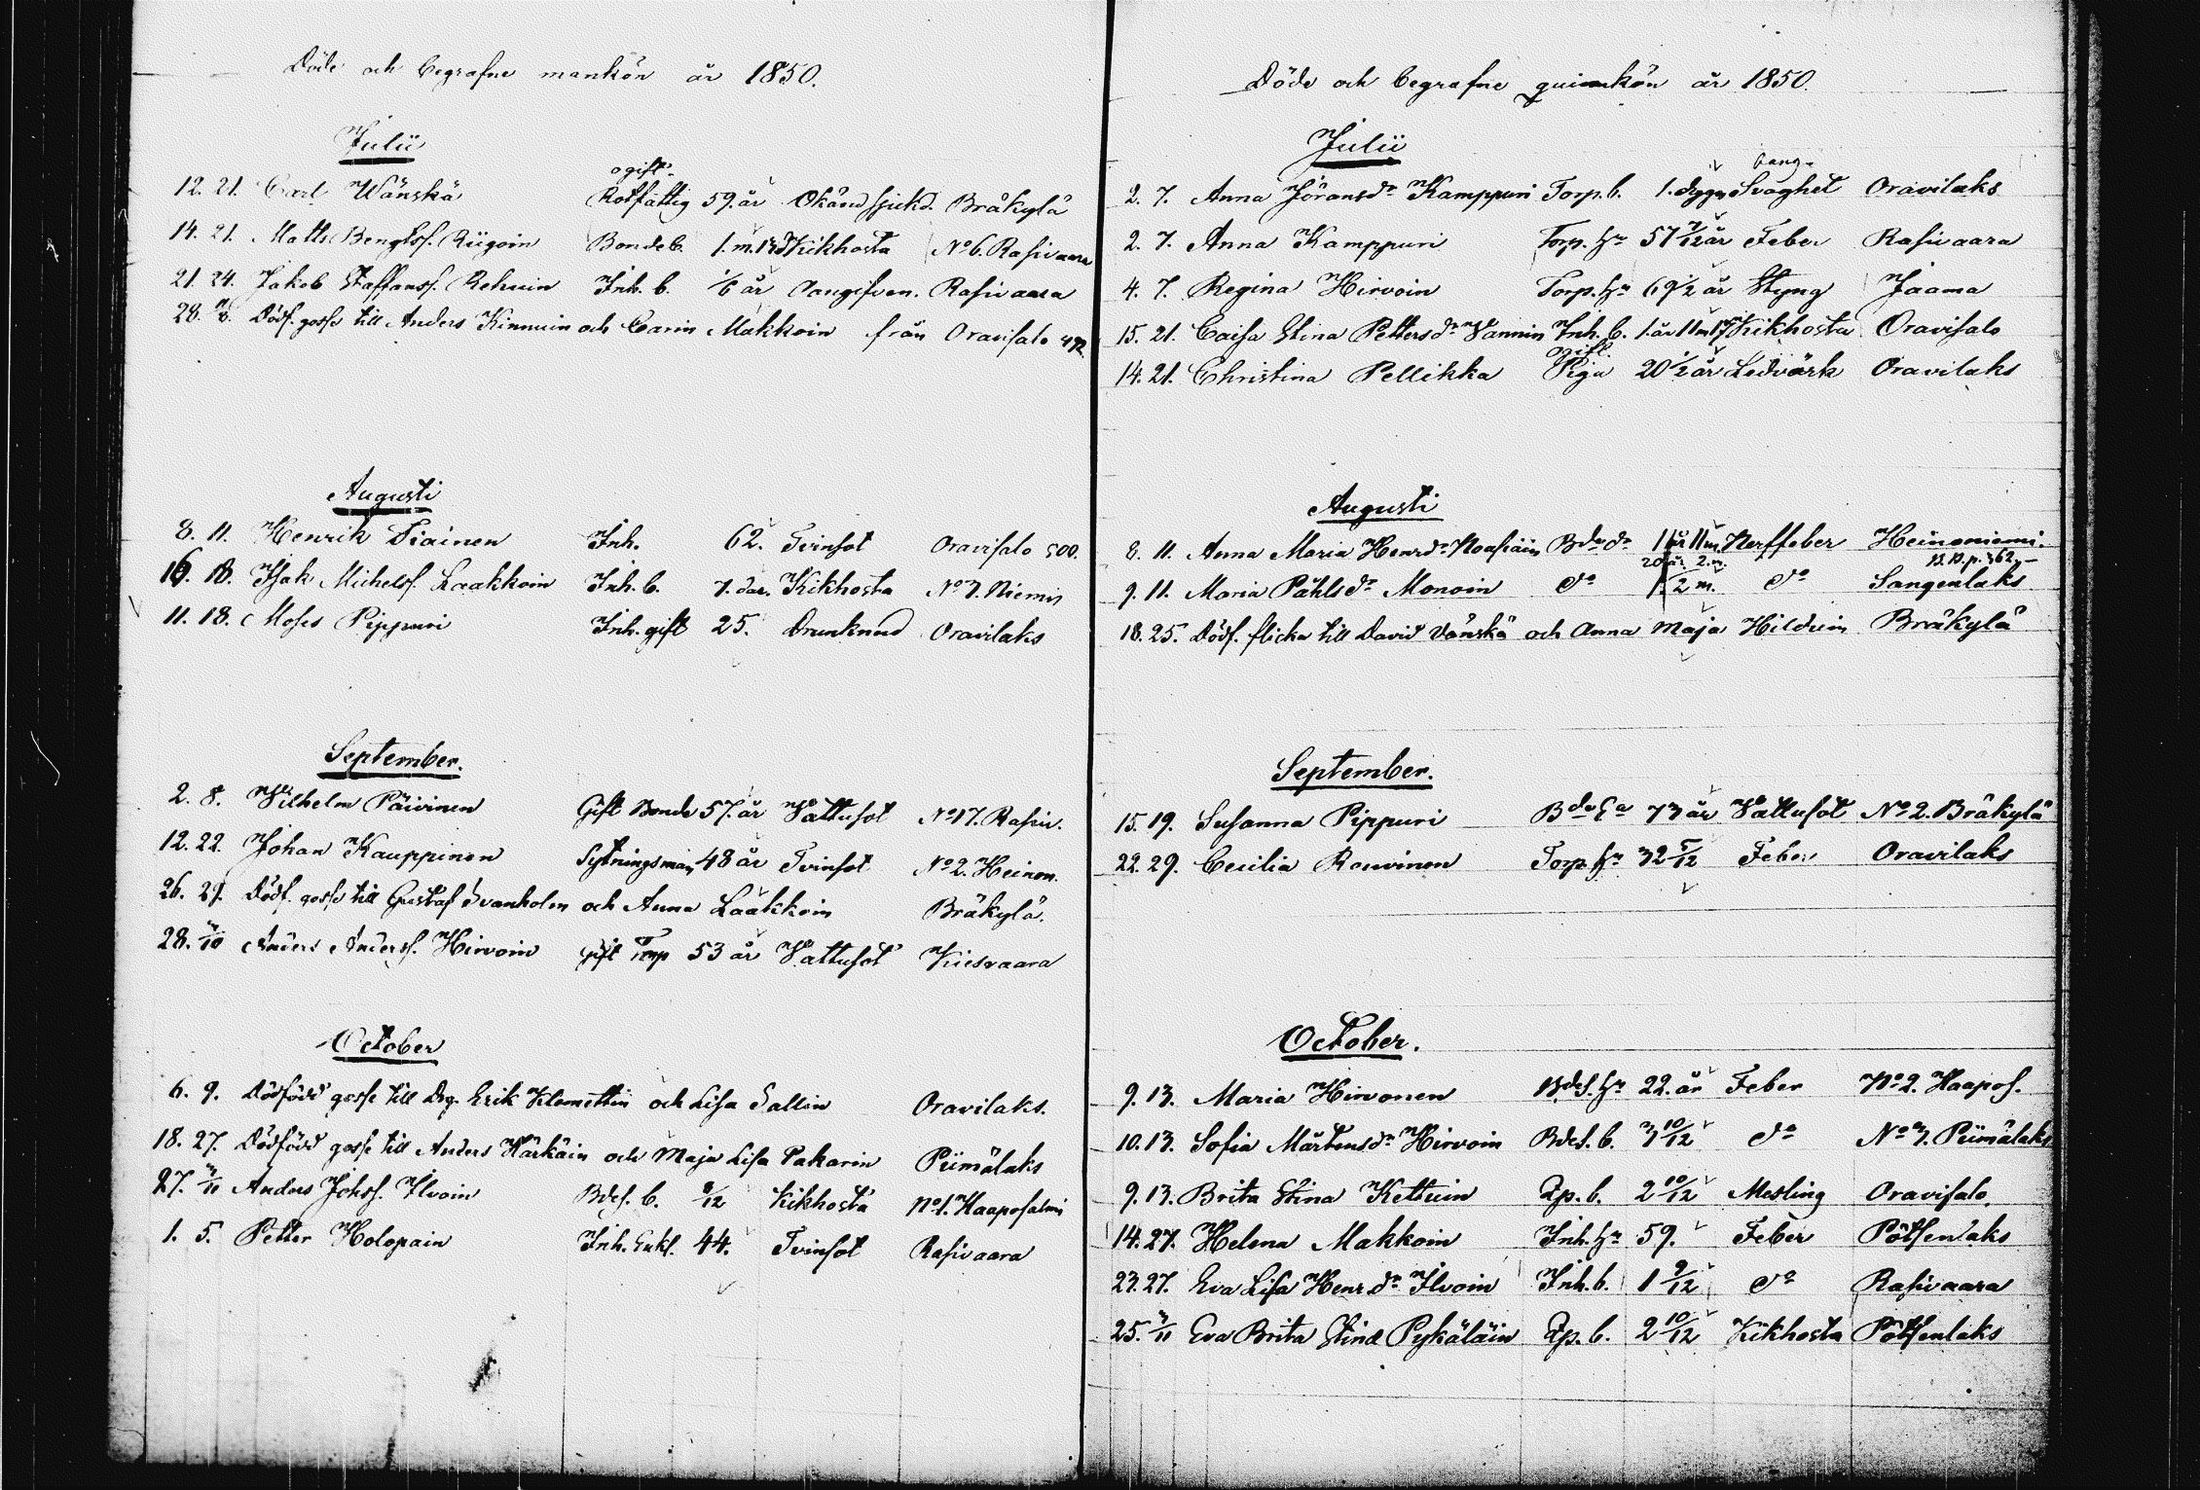 Döde och begrafne mankön år 1850.
Julii
ogift.
12. 21. Carl Wänskä Rotfattig 59. år Okänd sjukd. Bräkylä
14. 21. Matts Bengtss. Riigoin Bondeb. 1. m. Kikhosta No 6. Rasivaara
21. 24. Jakob Staffanss. Rehnin Inh. b. 1/6 år Oangifven. Rasivaara
28. Dödf. gosse till Anders Kinnuin och Carin Makkoin från Oravisalo
Augusti
8. 11. Henrik Tiainen Inh. 62. Tvinsot Oravisalo 500.
16. 18. Isak Michelss. Laakkoin Inh. b. 7. dar. Kikhosta No 7. Niemis
11. 18. Moses Pippuri Inh. gift 25. Drunknad Oravilaks
September.
2. 8. Wilhelm Päivinen Gift Bonde 57. år Wattusot No 17. Rasiv.
12. 22. Johan Kauppinen Sytningsman 48 år Tvinsot No 2. Heinon.
26. 29. Dödf. gosse till Gustaf Ivanholm och Anna Laakkoin Bräkylä.
28. Anders Anderss. Hirvoin Gift Torp 53 år Wattusot Kiesvaara
October
6. 9. Dödfödd gosse till Drg. Erik Klemettin och Lisa Sallin Oravilaks.
18. 27. Dödfödd gosse till Anders Härkäin och Maja Lisa Pakarin Piimälaks
27. 3/11 Anders Johss. Ilvoin Bdes. b. 8/12 Kikhosta No 1. Haaposalmi
1. 5. Petter Holopain Inh. Enkl. 44. Tvinsot Rasivaara
Döde och begrafne quinnkön år 1850.
Julii
bang.
2. 7. Anna Jöransdr Kamppuri Torp. b. 1. dygn Svaghet Oravilaks
2. 7. Anna Kamppuri Torp. hu 57 7/12 år Feber Rasivaara
4. 7. Regina Hirvoin Torp. hu 69 1/2 år Styng Jaama
15. 21. Caisa Stina Pettersdr Vannin Inh. b. 1. år 11 m Kikhosta Oravisalo
ogift.
14. 21. Christina Pellikka Piga 20 1/2 år Ledvärk Oravilaks
Augusti
8. 11. Anna Maria Henrdr Bdedr 1 år 11 m. Nerffeber Heinoniemi.
20 år. 2. m.
9. 11. Maria Påhlsdr Monoin do 1. 2 m. do Sangenlaks
18. 25. Dödf. flicka till David Vänskä och Anna Maja Hildéin Bräkylä
September.
15. 19. Susanna Pippuri Bde Ea 73 år Wattusot No 2. Bräkylä
22. 29. Cecilia Rouvinen Torp. hu 32 5/12 Feber Oravilaks
October.
9. 13. Maria Hirvonen Bdes. hu 22. år Feber No 2. Haapos.
10. 13. Sofia Mårtensdr Hirvoin Bdes. b. 3 10/12 do No 3. Piimälaks
9. 13. Brita Stina Kettuin Tp. b. 2 10/12 Mesling Oravisalo.
14. 27. Helena Makkoin Inh. hu 59. Feber Pötsenlaks
23. 27. Eva Lisa Henrdr Ilvoin Inh. b. 1 9/12 do Rasivaara
25. 3/11 Eva Brita Stina Pykäläin Tp. b. 2 10/12 Kikhosta Pötsenlaks